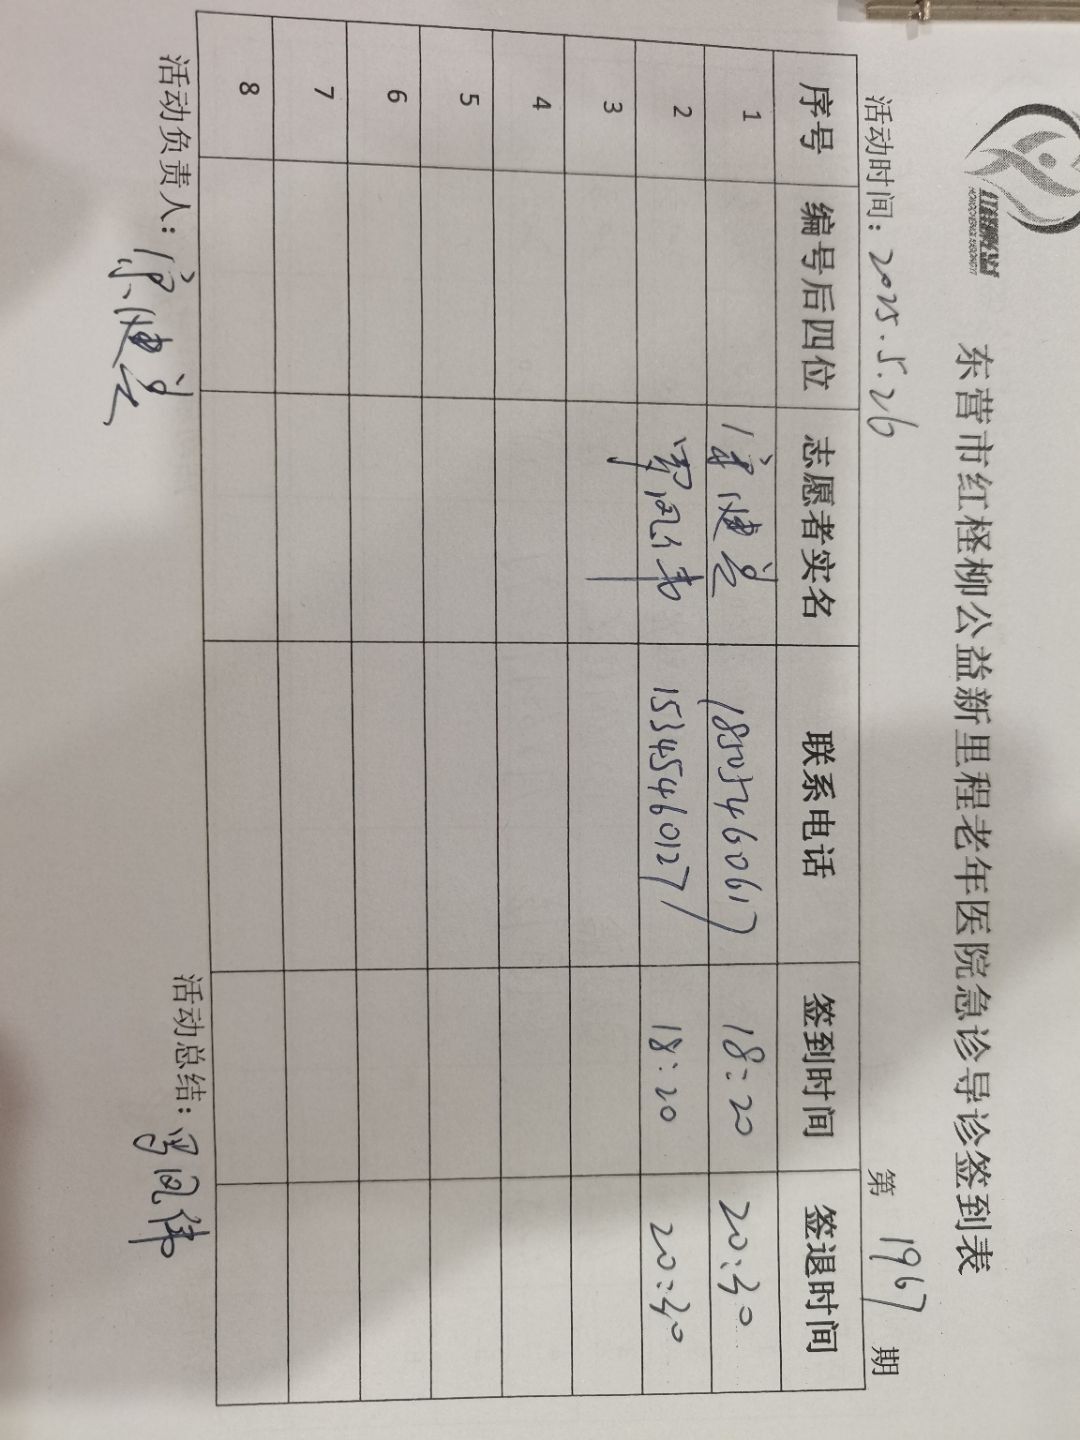 红柽柳公益
HONGCHENGLIUGONGYI
东营市红柽柳公益新里程老年医院急诊导诊签到表
活动时间：2025.5.26 第 1967 期
序号 编号后四位 志愿者实名 联系电话 签到时间 签退时间
1 健兰 18505460617 18:20 20:30
2 15345460127 18:20 20:30
3
4
5
6
7
8
活动负责人：健兰 活动总结：